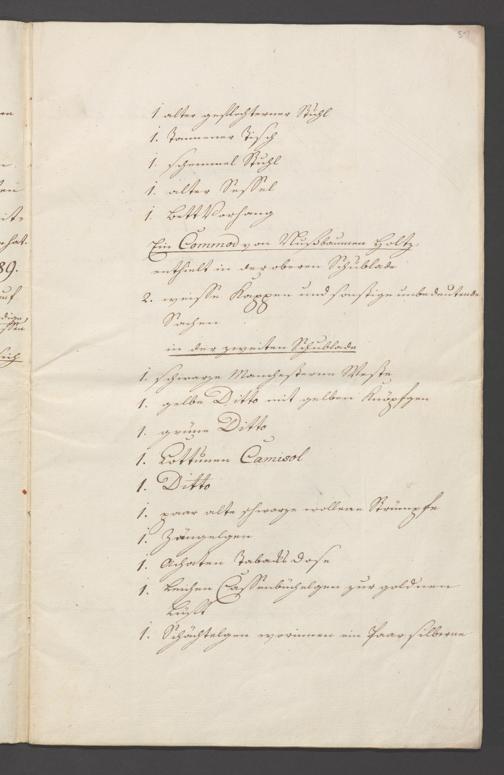 1 alter geflochtener Stuhl
1. Tannener Tisch
1. schemmel Stuhl
1. alter Sessel
1. Bett Vorhang
Ein Commod von Nußbaumen Holtz
enthielt in der oberen Schublade
2. weisse Kappen und sonstige unbedeutende
Sachen
in der zweiten Schublade
1. schwarze Manchesterne Weste
1. gelbe Ditto mit gelben Knöpfgen
1. grüne Ditto
1. Cottunen Camisol
1. Ditto
1. paar alte schwarze wollene Strümpfe
1. Zängelgen
1. Achaten Tabacks dose
1. Leichen Cassenbüchelgen zur goldnen
Luft
1. Schächtelgen worinnen ein Paar silberne
89.